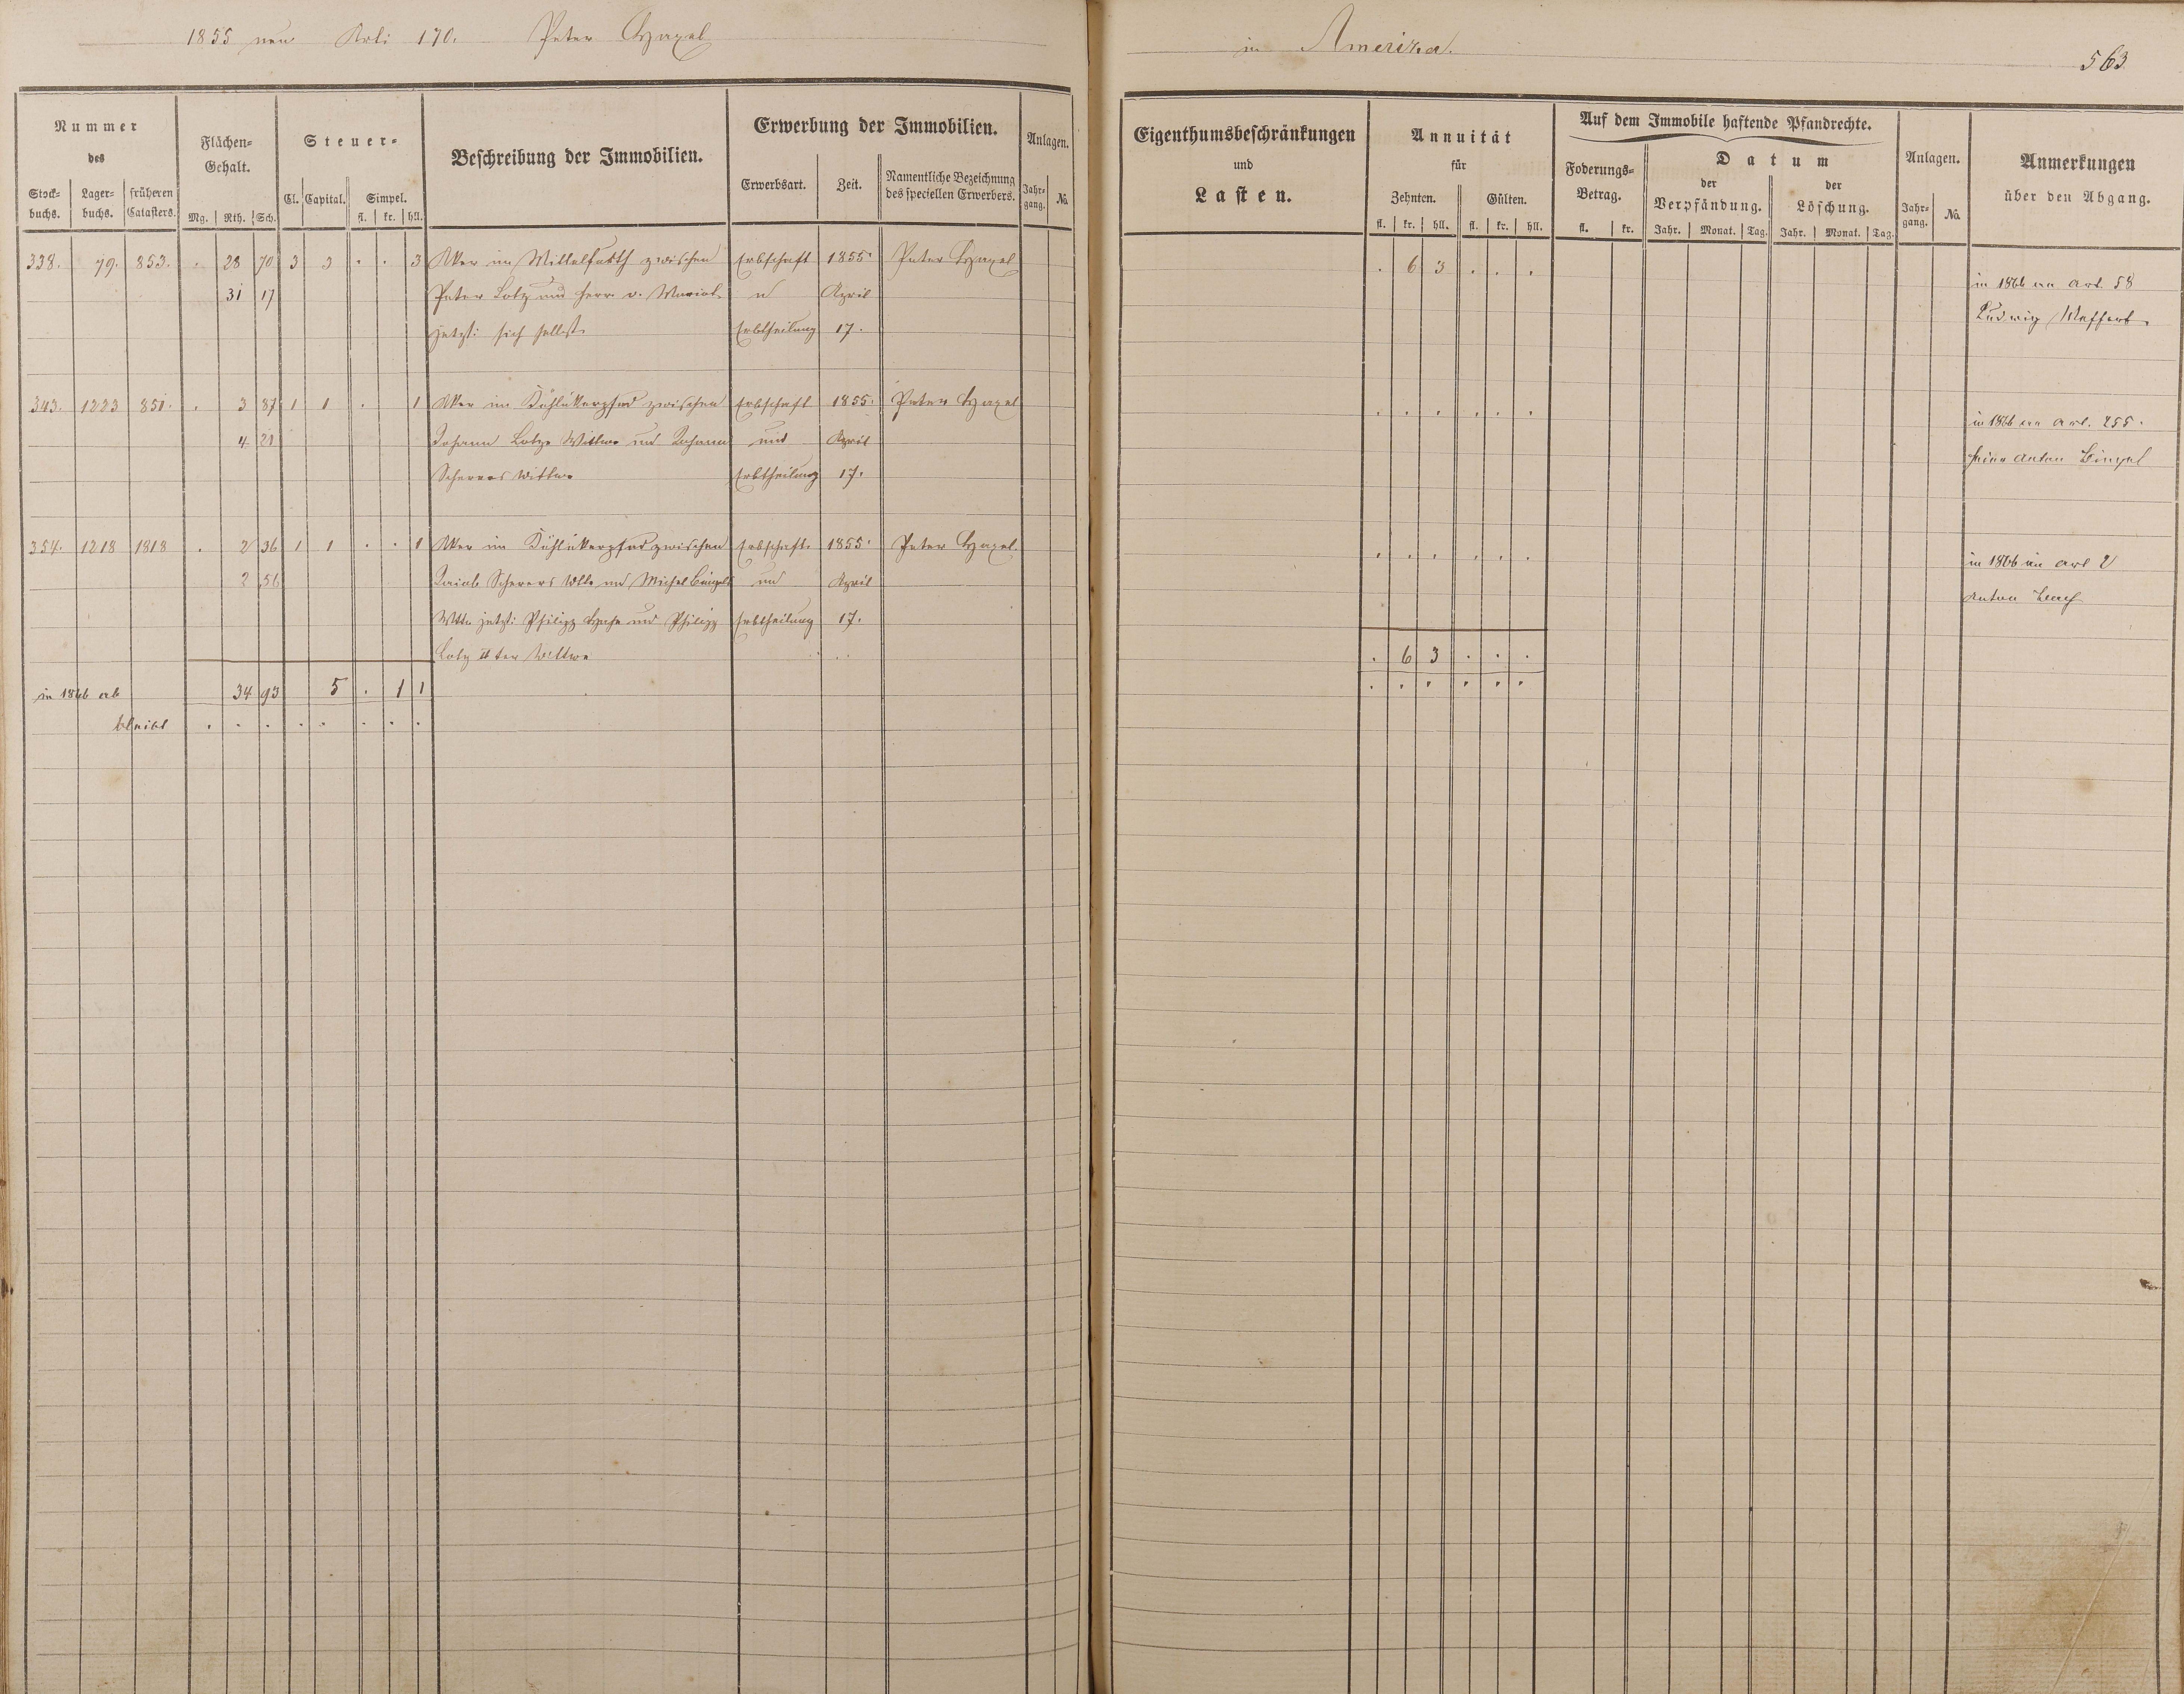 1855 neu Arti 170. Peter
in Amerika.
563
Nummer
des
Stock-buchs. Lager-buchs. früheren Catasters.
Flächen-Gehalt.
Mg. Rth. Sch.
Steuer-
Cl. Capital. Simpel.
fl. kr. hll.
Beschreibung der Immobilien.
Erwerbung der Immobilien.
Erwerbsart. Zeit. Namentliche Bezeichnung des speciellen Erwerbers.
Anlagen.
Jahr-gang. No.
Eigenthumsbeschränkungen
und
Lasten.
Annuität
für
Zehnten. Gülten.
fl. kr. hll. fl. kr. hll.
Auf dem Immobile haftende Pfandrechte.
Foderungs-Betrag.
fl. kr.
Datum
der Verpfändung. der Löschung.
Jahr. Monat. Tag. Jahr. Monat. Tag.
Anlagen.
Jahr-gang. No.
Anmerkungen
über den Abgang.
338. 79. 853. . 28 70 3 3 . . 3 Acker im zwischen Erbschaft 1855 Peter . 6 3 . . .
31 17 Peter Lotz und Herr v. u April in 1866 an Art. 58
jetzt: sich selbst Erbtheilung 17. Ludwig Meffert
343. 1223 851. . 3 87 1 1 . 1 Acker im zwischen Erbschaft 1855. Peter . . . . . .
4 21 Johann Lotz Wittwe und Johann und April in 1866 an Art. 255.
Scherers Wittwe Erbtheilung 17. Anton Bingel
354. 1218 1818 . 2 36 1 1 . . 1 Acker im zwischen Erbschaft 1855. Peter . . . . . .
2 56 Jacob Scherers Wtt. und Michel Bingels und April in 1866 an Art 2
Wtt. jetzt: Philipp und Philipp Erbtheilung 17. Anton
Lotz IIter Wittwe . 6 3 . . .
in 1866 ab 34 93 5 . 1 1 . . . . . .
bleibt . . . . . . . .